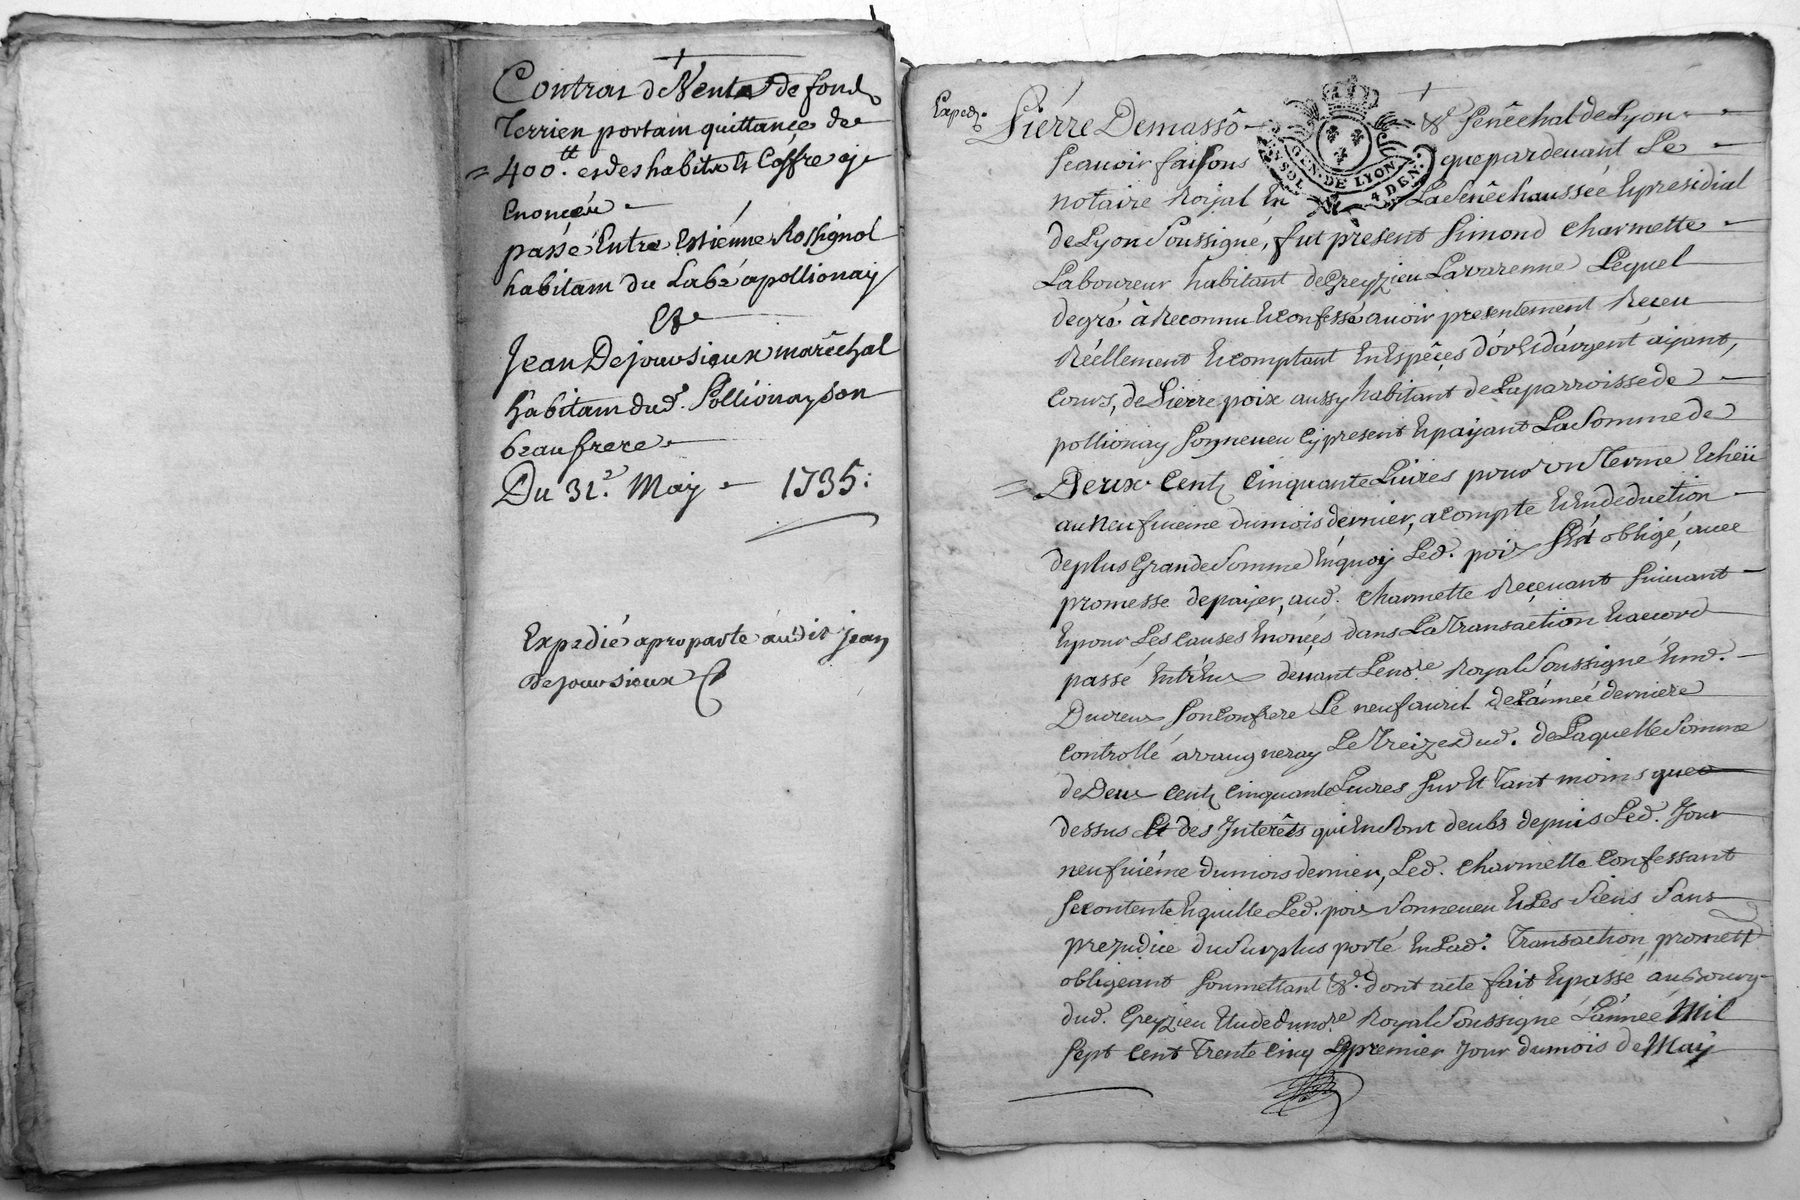 Contrat de Vente de fond
Terrien portam quittance de
= 400.tt et des habits & Coffre cy
Enoncés
passé Entre Estiénne Rossignol
habitam du Labé apollionay
Et
Jean Dejouvsieux marêchal
habitam dud. Pollionay son
beaufrere
Du 31.e May 1735.
Expedié a pro parte audit jean
Dejouvsieux
Exped.
Pierre Demasso & Senêchal de Lyon
Scauoir faisons que par deuant Le
notaire Royal En La Senêchaussée Et presidial
GEN. DE LYON
4 DEN.
de Lyon Soussigné, fut présent Simond Charmette
Laboureur habitant de Greyzieu Lavarenne Lequel
de gré à Reconnu Et Confessé auoir presentement Receu
Réellement Et comptant En Espêces d'or Et d'argent ayant,
Cours, de Pierre poix aussy habitant de La parroisse de
pollionay son neueu Cy present Et payant La Somme de
= Deux Cents Cinquante Liures pour un Terme Echeü
au Neufuieme du mois dernier, a compte Et En deduction
de plus Grande Somme En quoy Led. poix s'est obligé, auec
promesse de payer, aud. Charmette Receuant suiuant
Et pour Les Causes Enoncés dans La Transaction Et accord
passé Entr'Eux deuant Le no.re Royal Soussigné Et me.
Ducreux son Confrere Le neuf auril de L'année derniere
Controllé a vaugneray Le Treize dud. de Laquelle Somme
de Deux Cents Cinquante Liures sur Et Tant moins que
dessus Et des Interêts qui En sont deubs depuis Led. Jour
neufuiéme du mois dernier, Led. Charmette Confessant
se contente Et quitte Led. poix son neueu Et Les Siens Sans
prejudice du Surplus porté En Lad. Transaction, promett
obligeant soumettant &. dont acte fait Et passé au Bourg
dud. Greyzieu Etude du no.re Royal Soussigné L'année Mil
Sept Cent Trente Cinq Et Le premier Jour du mois de May